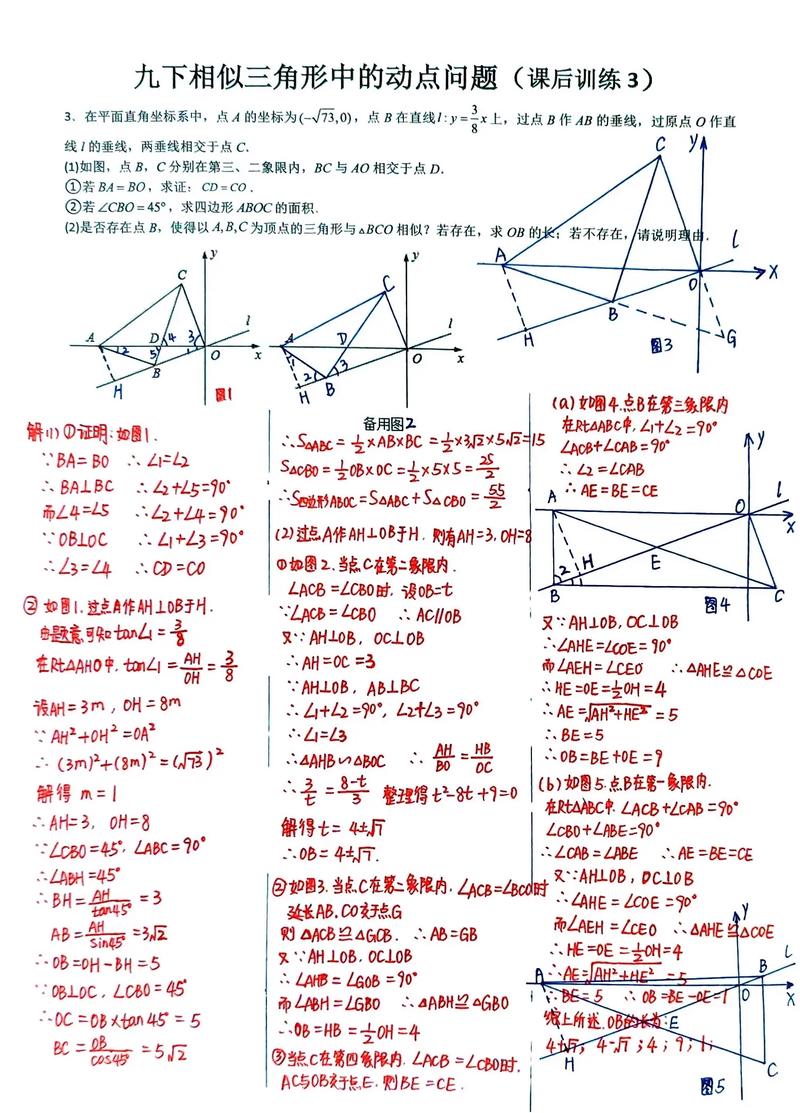 九下相似三角形中的动点问题（课后训练 3）
3．在平面直角坐标系中，点 A 的坐标为(−√73,0)，点 B 在直线 l : y = 3/8 x 上，过点 B 作 AB 的垂线，过原点 O 作直
线 l 的垂线，两垂线相交于点 C．
(1)如图，点 B，C 分别在第三、二象限内，BC 与 AO 相交于点 D．
①若 BA = BO，求证：CD = CO．
②若 ∠CBO = 45°，求四边形 ABOC 的面积．
(2)是否存在点 B，使得以 A,B,C 为顶点的三角形与△BCO 相似？若存在，求 OB 的长；若不存在，请说明理由．
C y A D 4 3 2 5 1 O x B H l
图1
y C A D l 1 2 3 O x H B
备用图2
C y A l O X B H G
图3
解(1)①证明:如图1.
∵BA=BO ∴∠1=∠2
∴BA⊥BC ∴∠2+∠5=90°
而∠4=∠5 ∴∠2+∠4=90°
∵OB⊥OC ∴∠1+∠3=90°
∴∠3=∠4 ∴CD=CO
② 如图1.过点A作AH⊥OB于H.
由题意可知tan∠1=3/8
在Rt△AHO中, tan∠1=AH/OH=3/8
设AH=3m, OH=8m
∵AH²+OH²=OA²
∴(3m)²+(8m)²=(√73)²
解得 m=1
∴AH=3, OH=8
∵∠CBO=45°, ∠ABC=90°
∴∠ABH=45°
∴BH=AH/tan45°=3
AB=AH/sin45°=3√2
∴OB=OH-BH=5
∵OB⊥OC, ∠CBO=45°
∴OC=OB×tan45°=5
BC=OB/cos45°=5√2
∴S△ABC=1/2×AB×BC=1/2×3√2×5√2=15
S△CBO=1/2OB×OC=1/2×5×5=25/2
∴S四边形ABOC=S△ABC+S△CBO=55/2
(2)过点A作AH⊥OB于H. 则有AH=3,OH=8
①如图2.当点C在第二象限内.
∠ACB=∠CBO时, 设OB=t
∵∠ACB=∠CBO ∴AC//OB
又∵AH⊥OB, OC⊥OB
∴AH=OC=3
∵AH⊥OB, AB⊥BC
∴∠1+∠2=90°, ∠2+∠3=90°
∴∠1=∠3
∴△AHB∽△BOC ∴AH/BO=HB/OC
∴3/t=(8-t)/3 整理得t²-8t+9=0
解得t=4±√7
∴OB=4±√7.
②如图3.当点C在第二象限内, ∠ACB=∠BCO时
延长AB,CO交于点G
则△ACB≌△GCB. ∴AB=GB
又∵AH⊥OB, OC⊥OB
∴∠AHB=∠GOB=90°
而∠ABH=∠GBO ∴△ABH≌△GBO
∴OB=HB=1/2OH=4
③当点C在第四象限内. ∠ACB=∠CBO时.
AC与OB交于点E. 则BE=CE.
(a)如图4.点B在第三象限内
在Rt△ABC中, ∠1+∠2=90°
∠ACB+∠CAB=90°
∴∠2=∠CAB
∴AE=BE=CE
y A O l X 2 H E 1 B C
图4
又∵AH⊥OB, OC⊥OB
∴∠AHE=∠COE=90°
而∠AEH=∠CEO ∴△AHE≌△COE
∴HE=OE=1/2OH=4
∴AE=√AH²+HE²=5
∴BE=5
∴OB=BE+OE=9
(b)如图5.点B在第一象限内.
在Rt△ABC中. ∠ACB+∠CAB=90°
∠CBO+∠ABE=90°
∴∠CAB=∠ABE ∴AE=BE=CE
又∵AH⊥OB, OC⊥OB
∴∠AHE=∠COE=90°
而∠AEH=∠CEO ∴△AHE≌△COE
∴HE=OE=1/2OH=4
∴AE=√AH²+HE²=5
∴BE=5 ∴OB=BE-OE=1
综上所述.OB的长为:
4+√7, 4-√7; 4; 9; 1;
y A B l O X E H C
图5